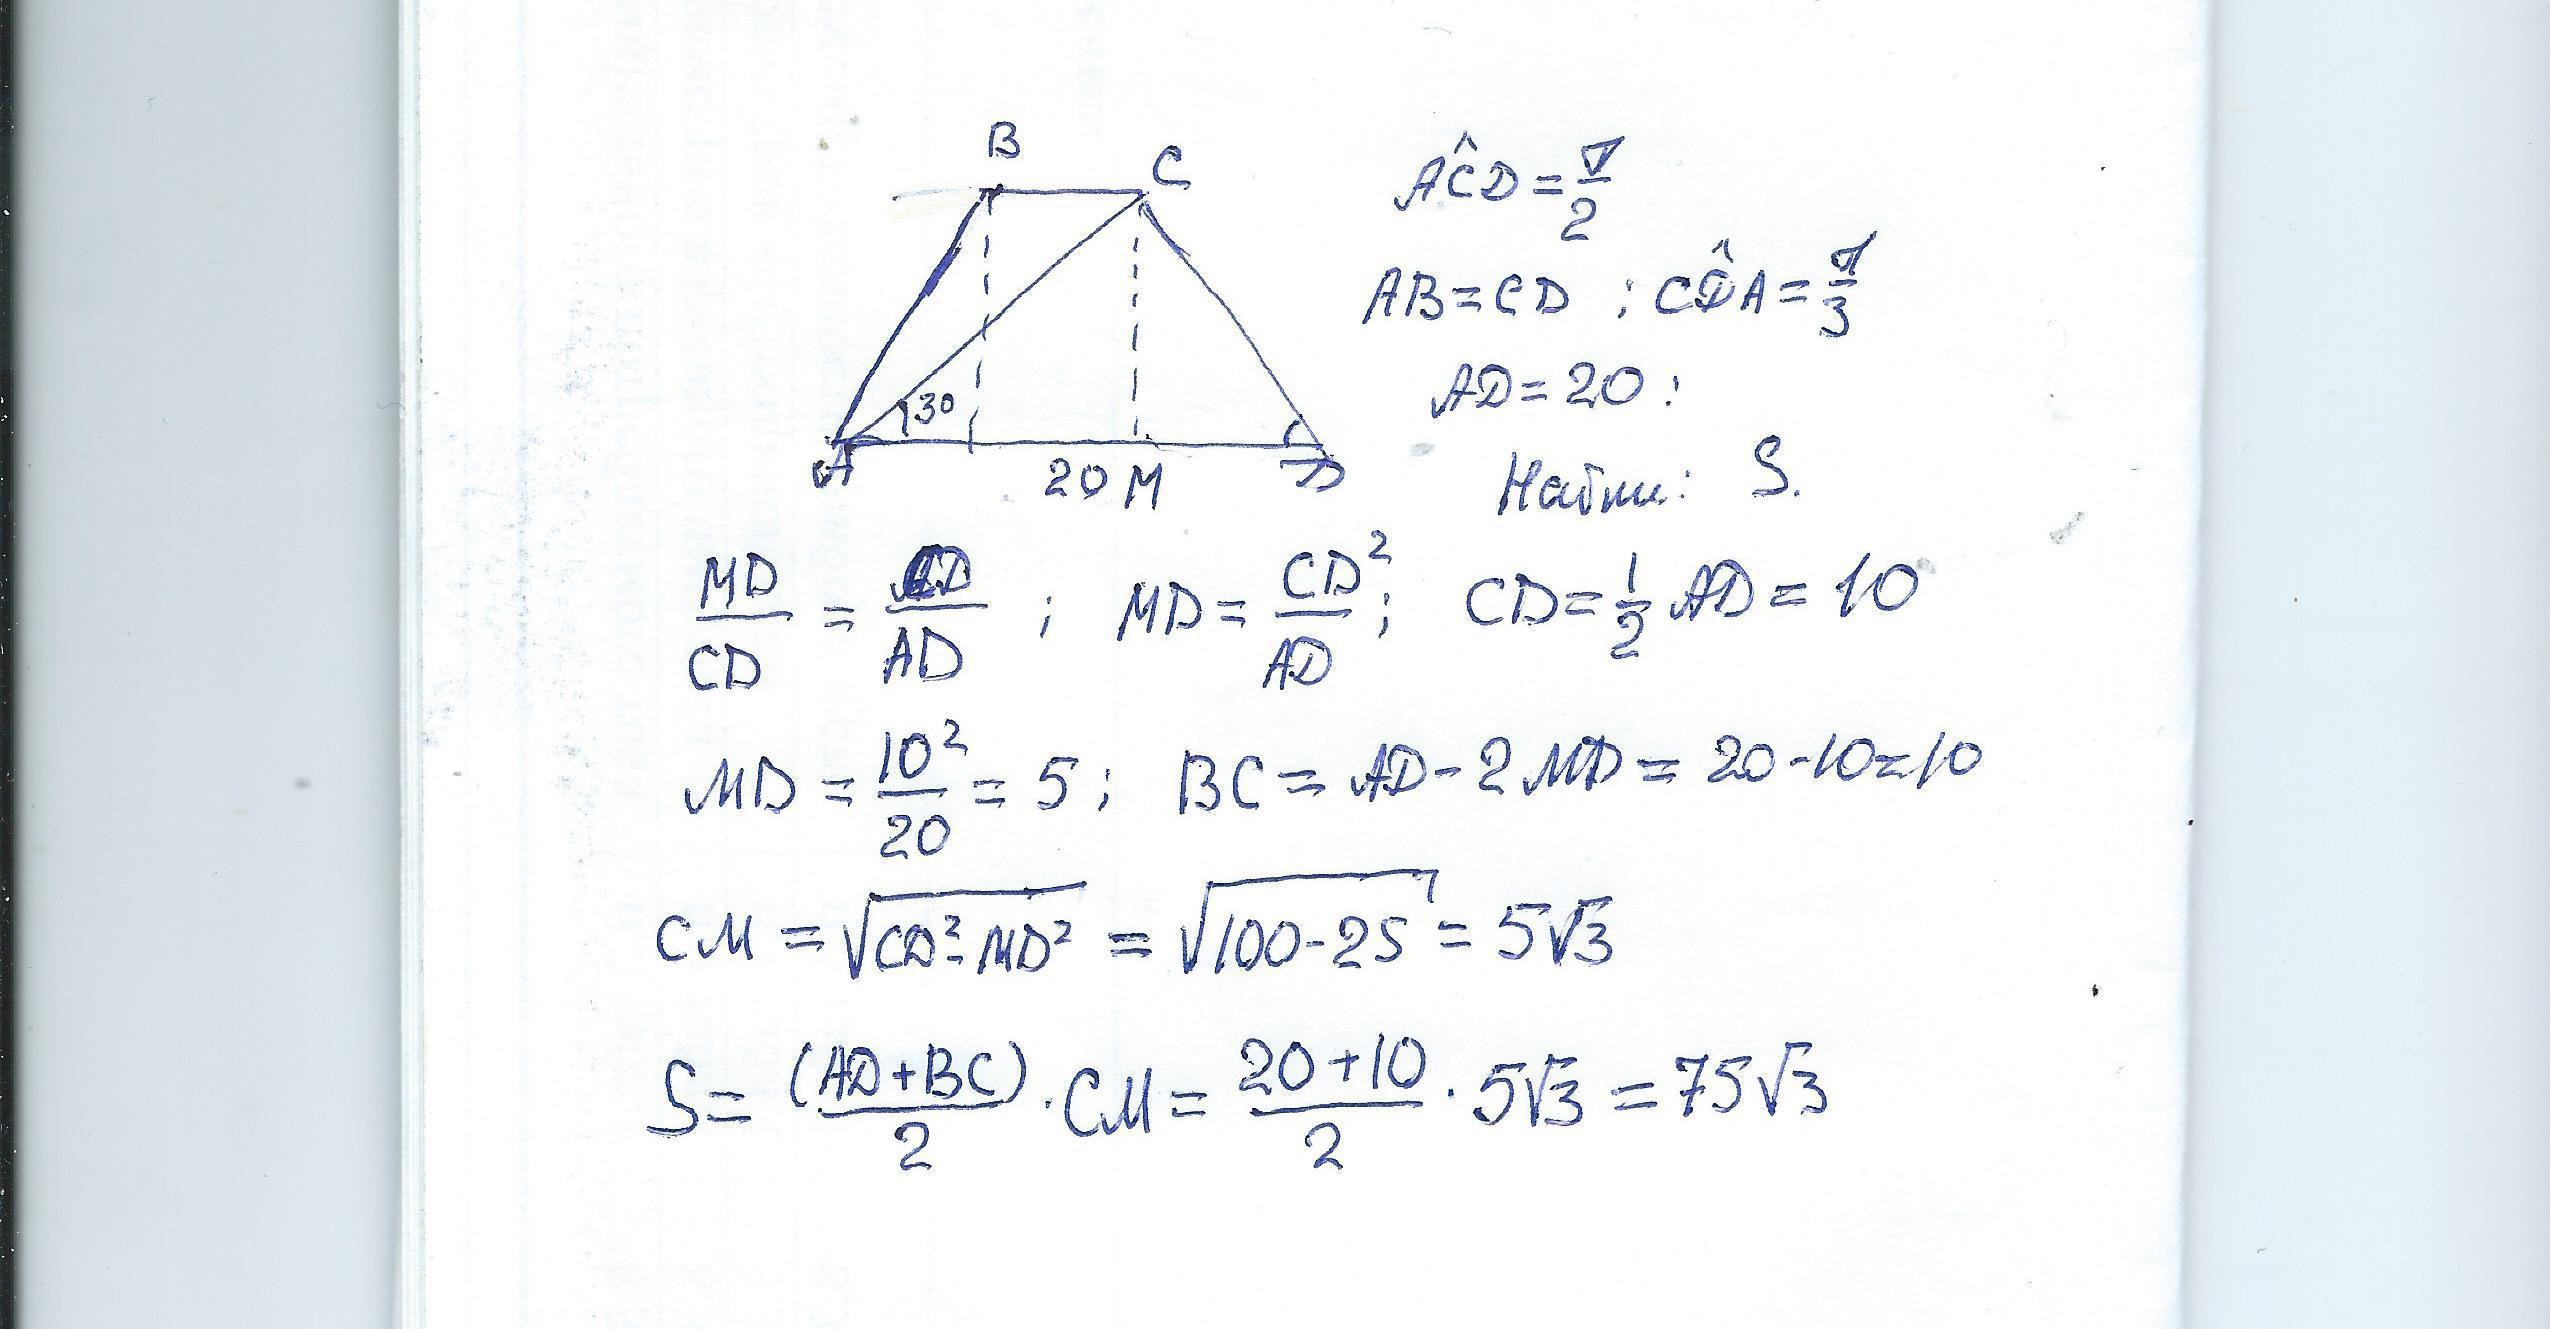 B
C
30
A
20 M
D
AĈD = π/2
AB = CD ; CD̂A = π/3
AD = 20 ;
Найти: S.
MD/CD = CD/AD ; MD = CD²/AD ; CD = 1/2 AD = 10
MD = 10²/20 = 5 ; BC = AD - 2MD = 20 - 10 = 10
CM = √(CD² - MD²) = √(100 - 25) = 5√3
S = (AD + BC)/2 · CM = (20 + 10)/2 · 5√3 = 75√3